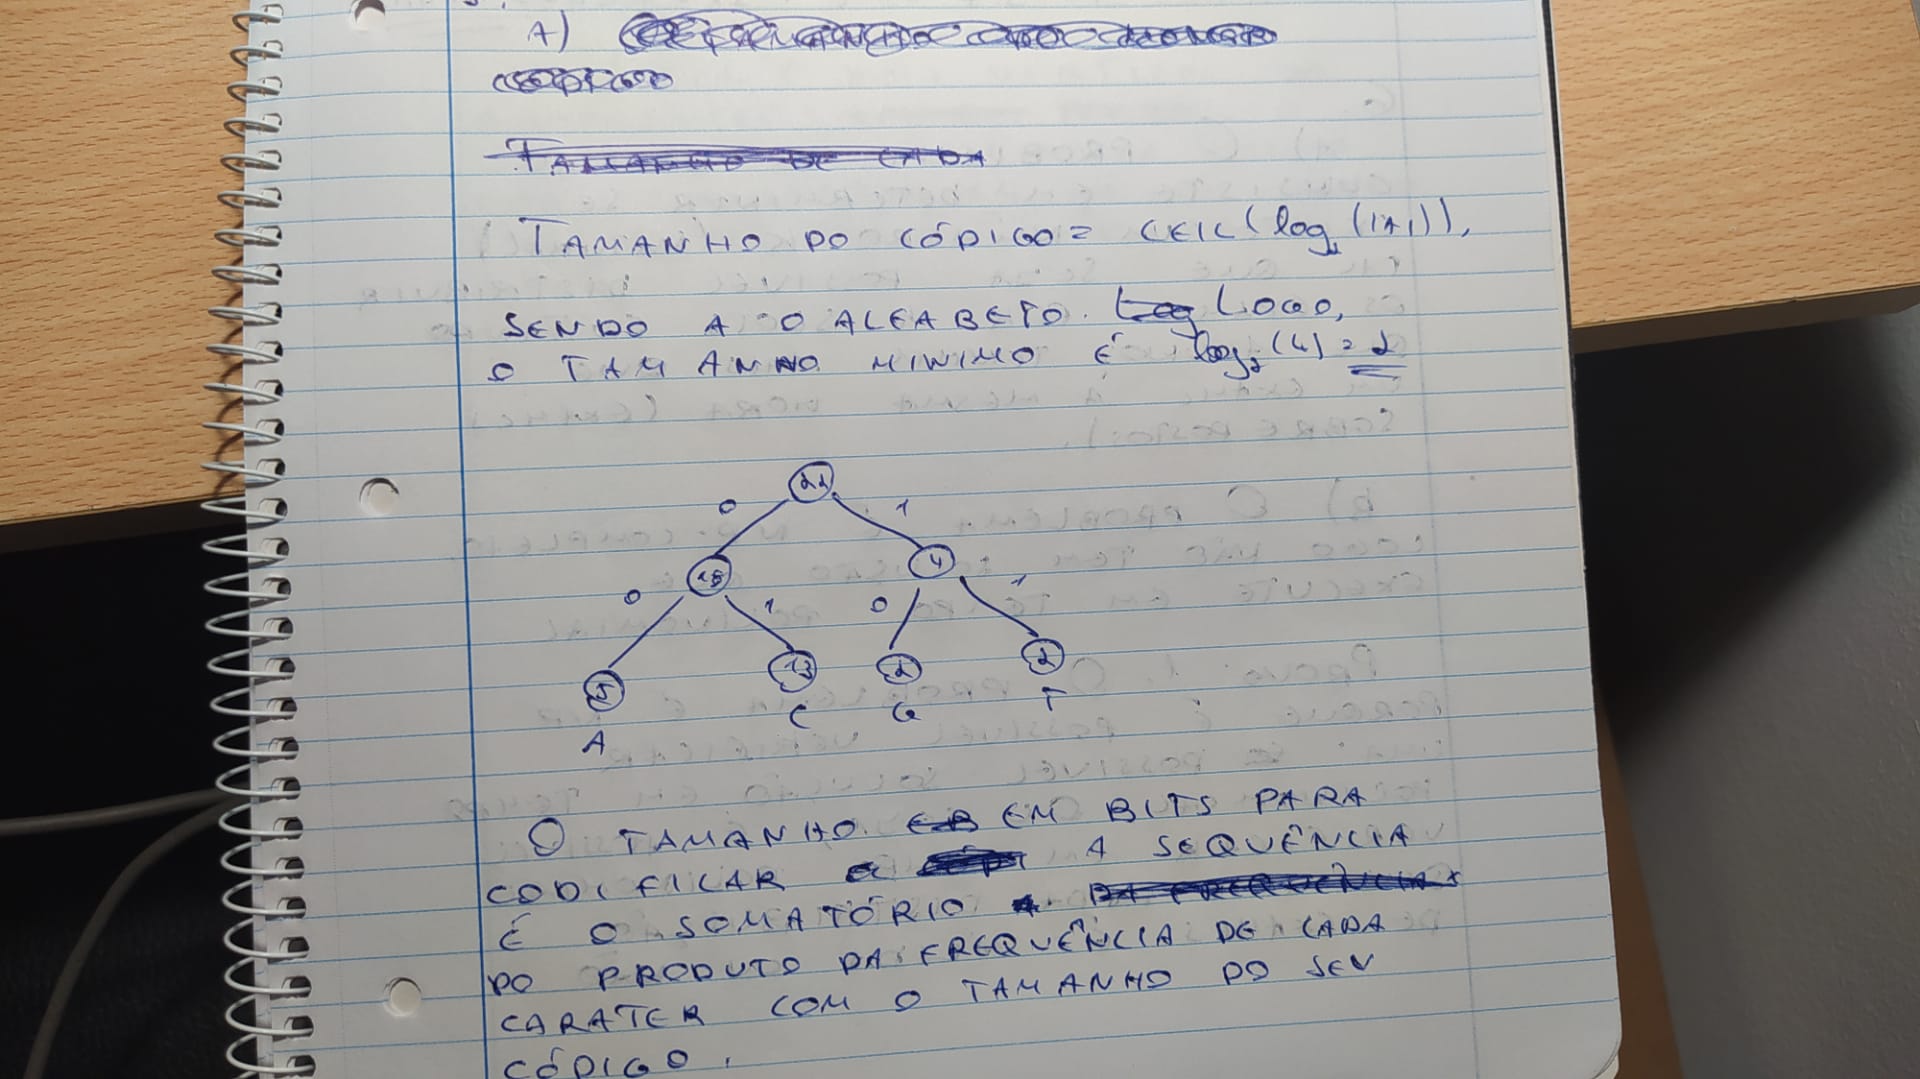 A)
TAMANHO DE CADA
TAMANHO DO CÓDIGO = CEIL(log₂(|A|)),
SENDO A O ALFABETO. Log LOGO,
O TAMANHO MINIMO É log₂(4) = 2
22
0 1
18 4
0 1 0 1
5 13 2 2
A C G T
O TAMANHO EM BITS PARA
CODIFICAR A SEQUÊNCIA
É O SOMATÓRIO
DO PRODUTO DA FREQUÊNCIA DE CADA
CARATER COM O TAMANHO DO SEU
CÓDIGO.